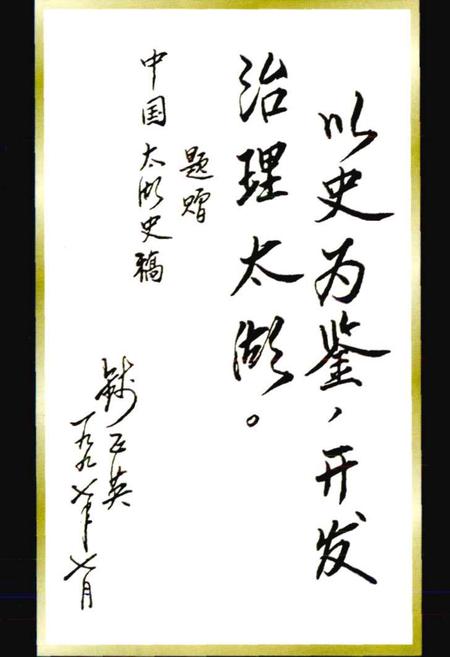 以史为鉴，开发
治理太湖。
题赠
中国太湖史稿
钱正英
一九九七年七月